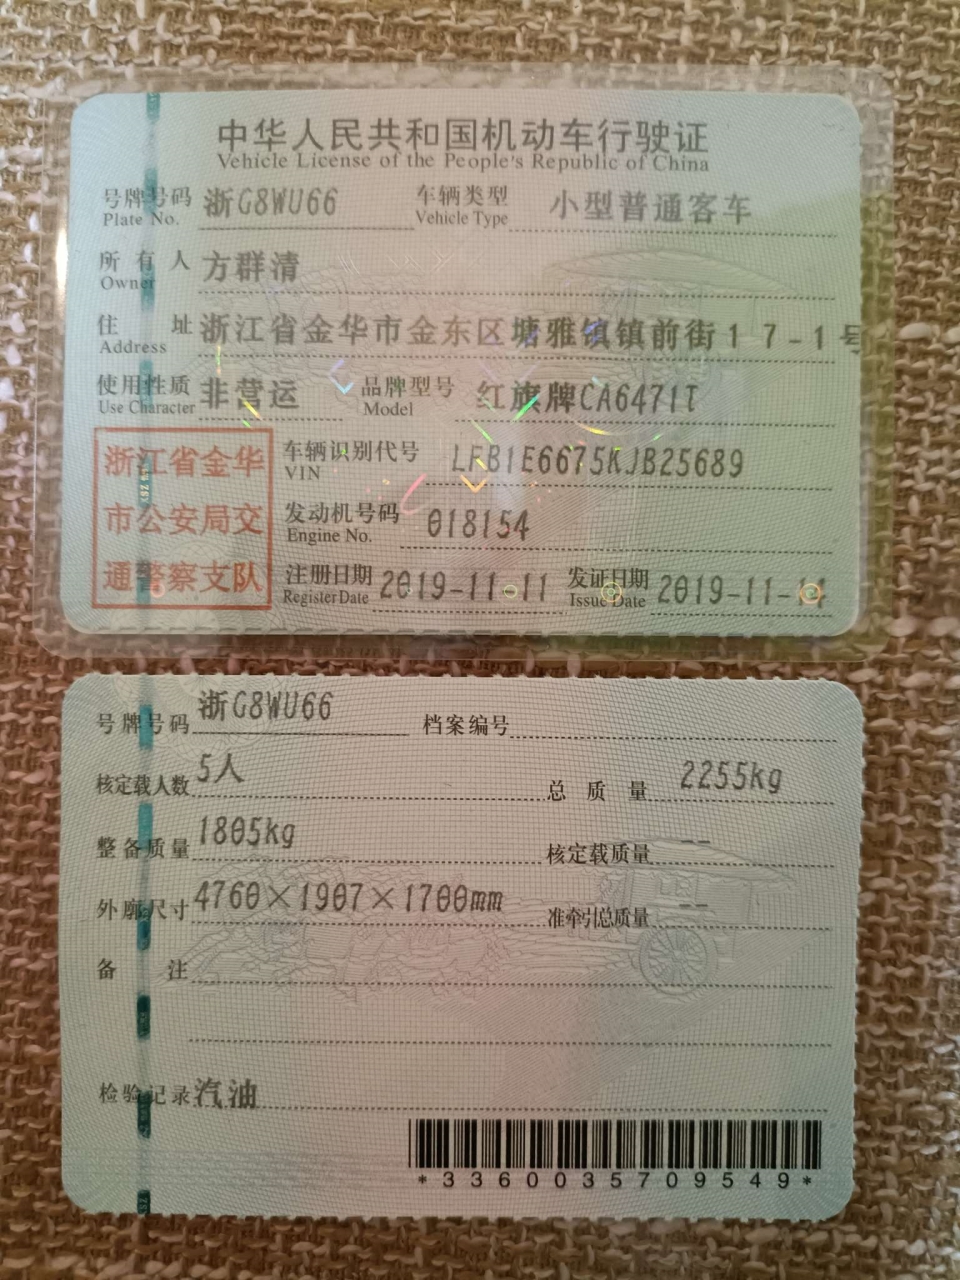 中华人民共和国机动车行驶证
Vehicle License of the People's Republic of China
号牌号码 浙G8WU66 车辆类型 小型普通客车
Plate No. Vehicle Type
所有人 方群清
Owner
住址 浙江省金华市金东区塘雅镇镇前街17-1号
Address
使用性质 非营运 品牌型号 红旗牌CA6471T
Use Character Model
浙江省金华
市公安局交
通警察支队
车辆识别代号 LFB1E6675KJB25689
VIN
发动机号码 018154
Engine No.
注册日期 2019-11-11 发证日期 2019-11-14
Register Date Issue Date
号牌号码 浙G8WU66 档案编号
核定载人数 5人 总质量 2255kg
整备质量 1805kg 核定载质量 --
外廓尺寸 4760×1907×1700mm 准牵引总质量 --
备注
检验记录 汽油
*3360035709549*